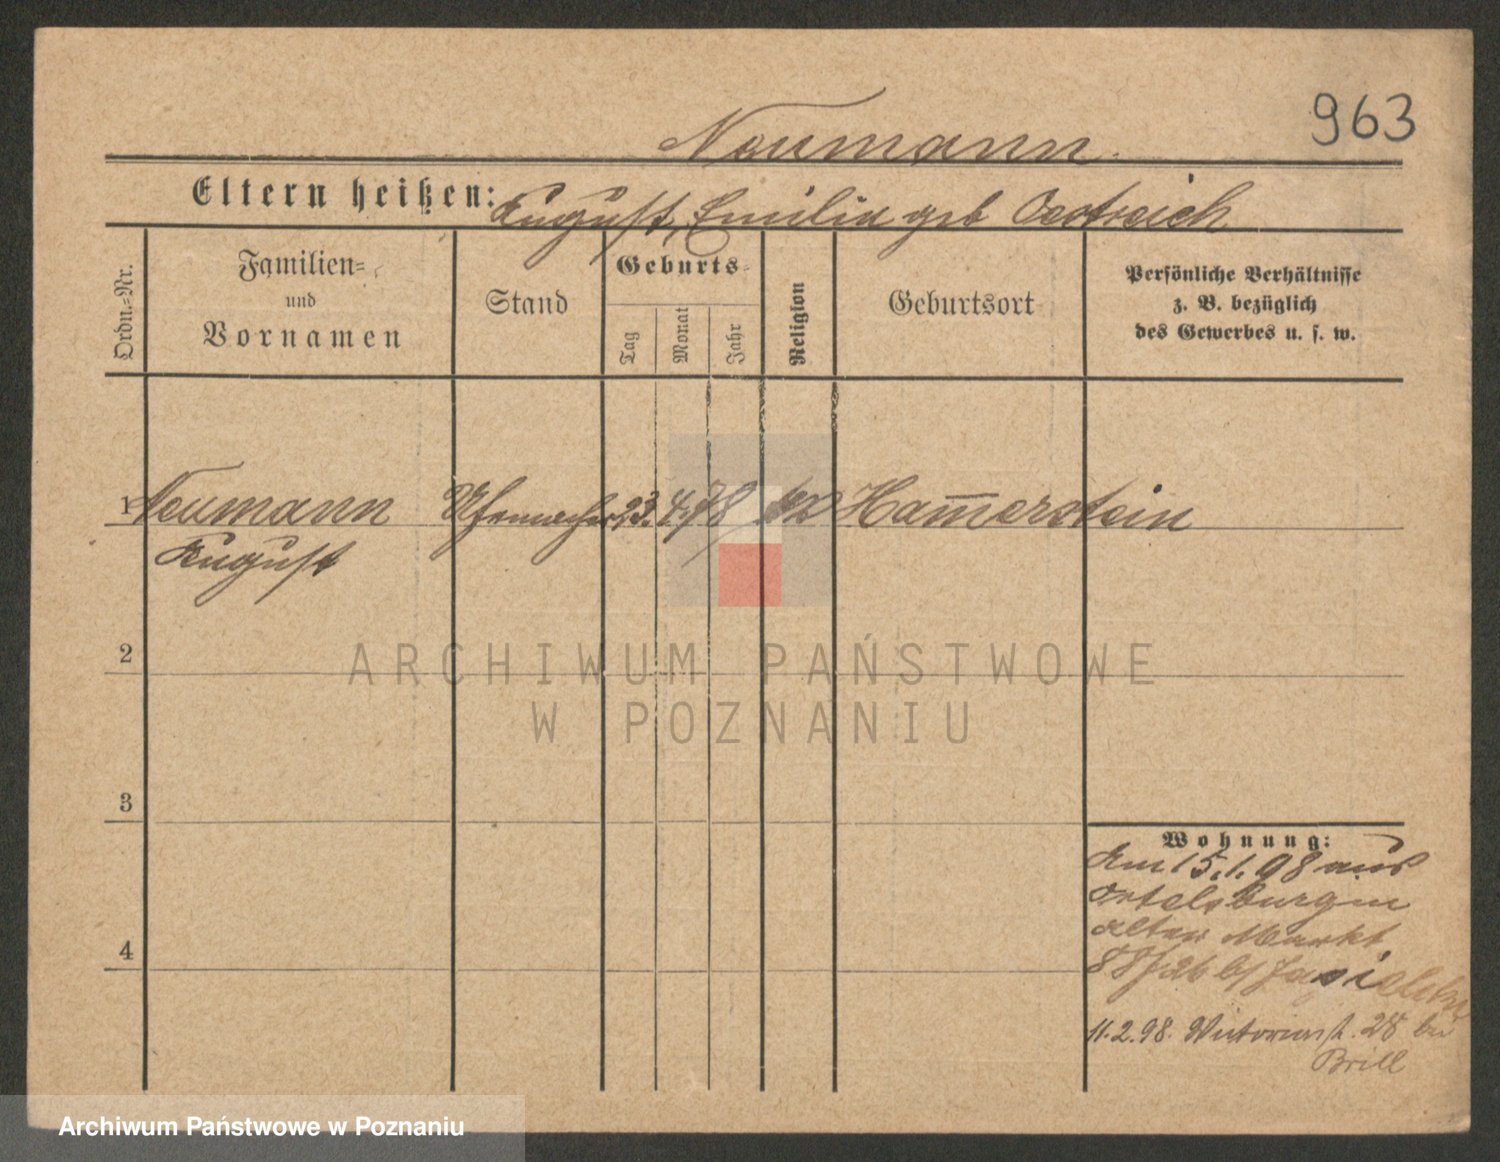 963
Neumann.
Eltern heißen: August, Emilia geb Oestreich
Ordn.=Nr.
Familien=
und
Vornamen
Stand
Geburts=
Tag
Monat
Jahr
Religion
Geburtsort
Persönliche Verhältnisse
z. B. bezüglich
des Gewerbes u. s. w.
1 Neumann Uhrmacher 23. 4. 78 Ham̄erstein
August
2
ARCHIWUM PAŃSTWOWE
W POZNANIU
3
Wohnung:
Am 15.1.98 aus
Ortelsburg in
Alter Markt
4
11.2.98. Victoriastr. 28 bei
Brill
Archiwum Państwowe w Poznaniu